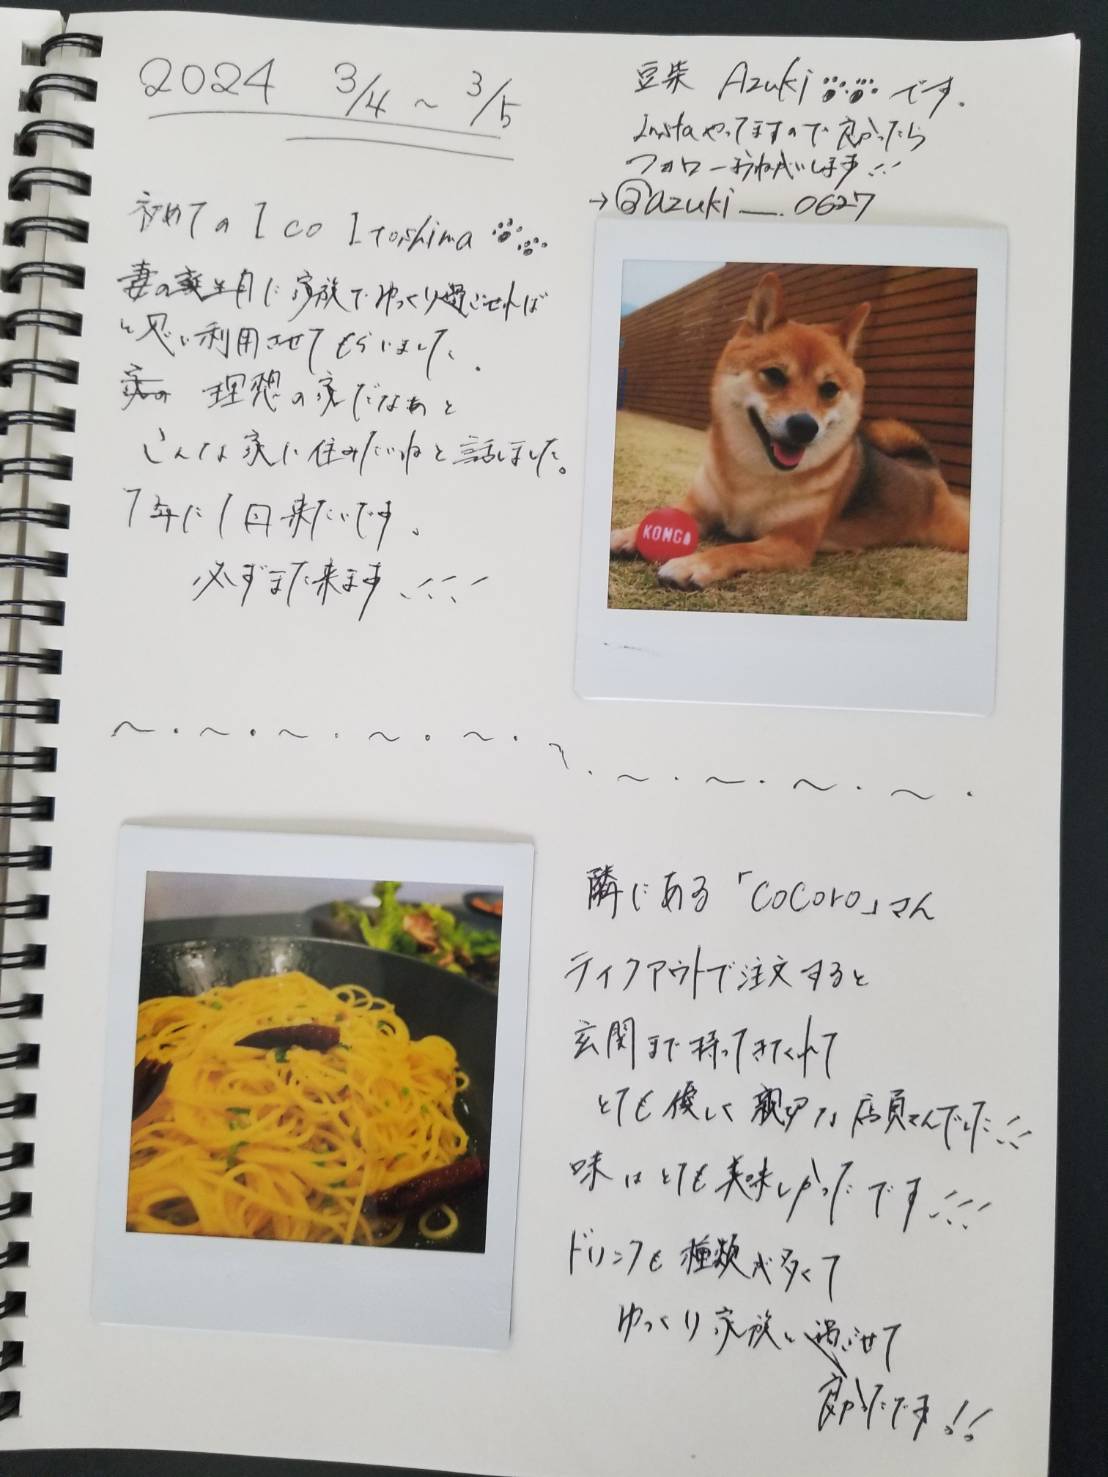 2024 3/4 ~ 3/5
初めての Ico Itoshima
妻の誕生月に家族でゆっくり過ごせれば
と思い利用させてもらいました。
理想の家だなぁと
こんな家に住みたいねと話しました。
1年に1回来たいです。
必ずまた来ます!!!
豆柴 Azuki です。
Instaやってますので良かったら
フォローおねがいします!!
→@azuki__.0627
KONG
隣にある「CoCoro」さん
テイクアウトで注文すると
玄関まで持ってきてくれて
とても優しく親切な店員さんでした!!
味はとても美味しかったです!!!
ドリンクも種類が多くて
ゆっくり家族と過ごせて
良かったです!!